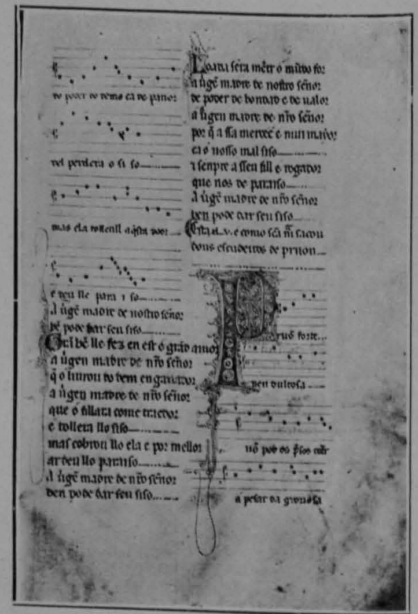 do poder do demo ca de pauor
del perdera o si so
mas ela tolleull aq̃sta door
e deu lle para i so
A uirgẽ madre de nostro señor
bẽ pode dar seu siso
Gʳã bẽ lle fez en est o grãd amor
a uigen madre de nr̃o señor
q̃ o liurou do dem enganador
a uigen madre de nr̃o señor
que o fillara come traedor
e tollera llo siso
mas cobrou llo ela e por mellor
ar deu llo parayso
A uigẽ madre de nr̃o señor
ben pode dar seu siso
Loada será mẽtr o mũdo for
a uigẽ madre de nostro señor
de poder de bondad e de ualor
a uigen madre de nr̃o señor
por q̃ a ssa mercee e mui mayor
ca o nosso mal siso
i senpre a sseu fill e rogador
que nos dé paraiso
A uigẽ madre de nr̃o señor
ben pode dar seu siso
Esta como sc̃a m̃ sacou
dous escudeiros de prijon
P
ruõ forte
nen dultosa
nõ pod os p̃sos
a pesar da groriosa